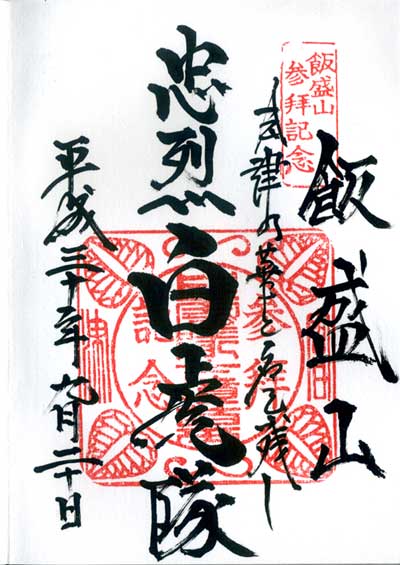 飯盛山
参拝記念
飯盛山
会津の華と名を残し
忠烈白虎隊
平成三十年九月二十日
参拝
記念